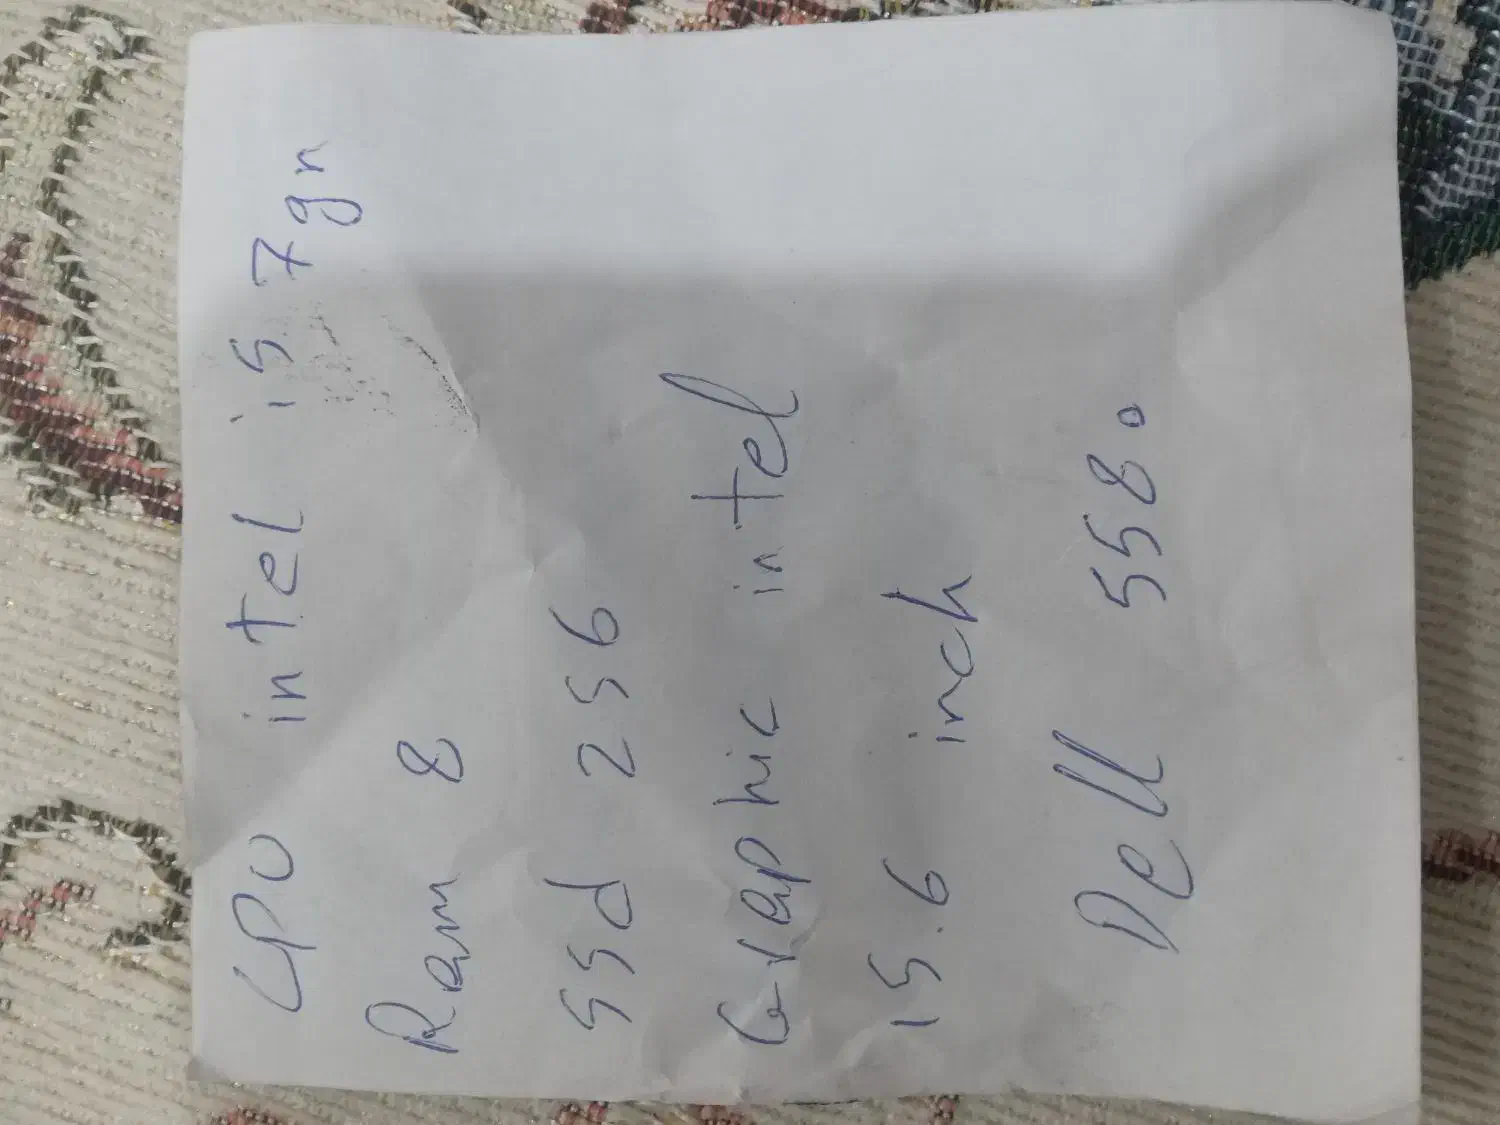 CPU intel i5 7gn
Ram 8
SSd 256
Graphic intel
15.6 inch
Dell 5580